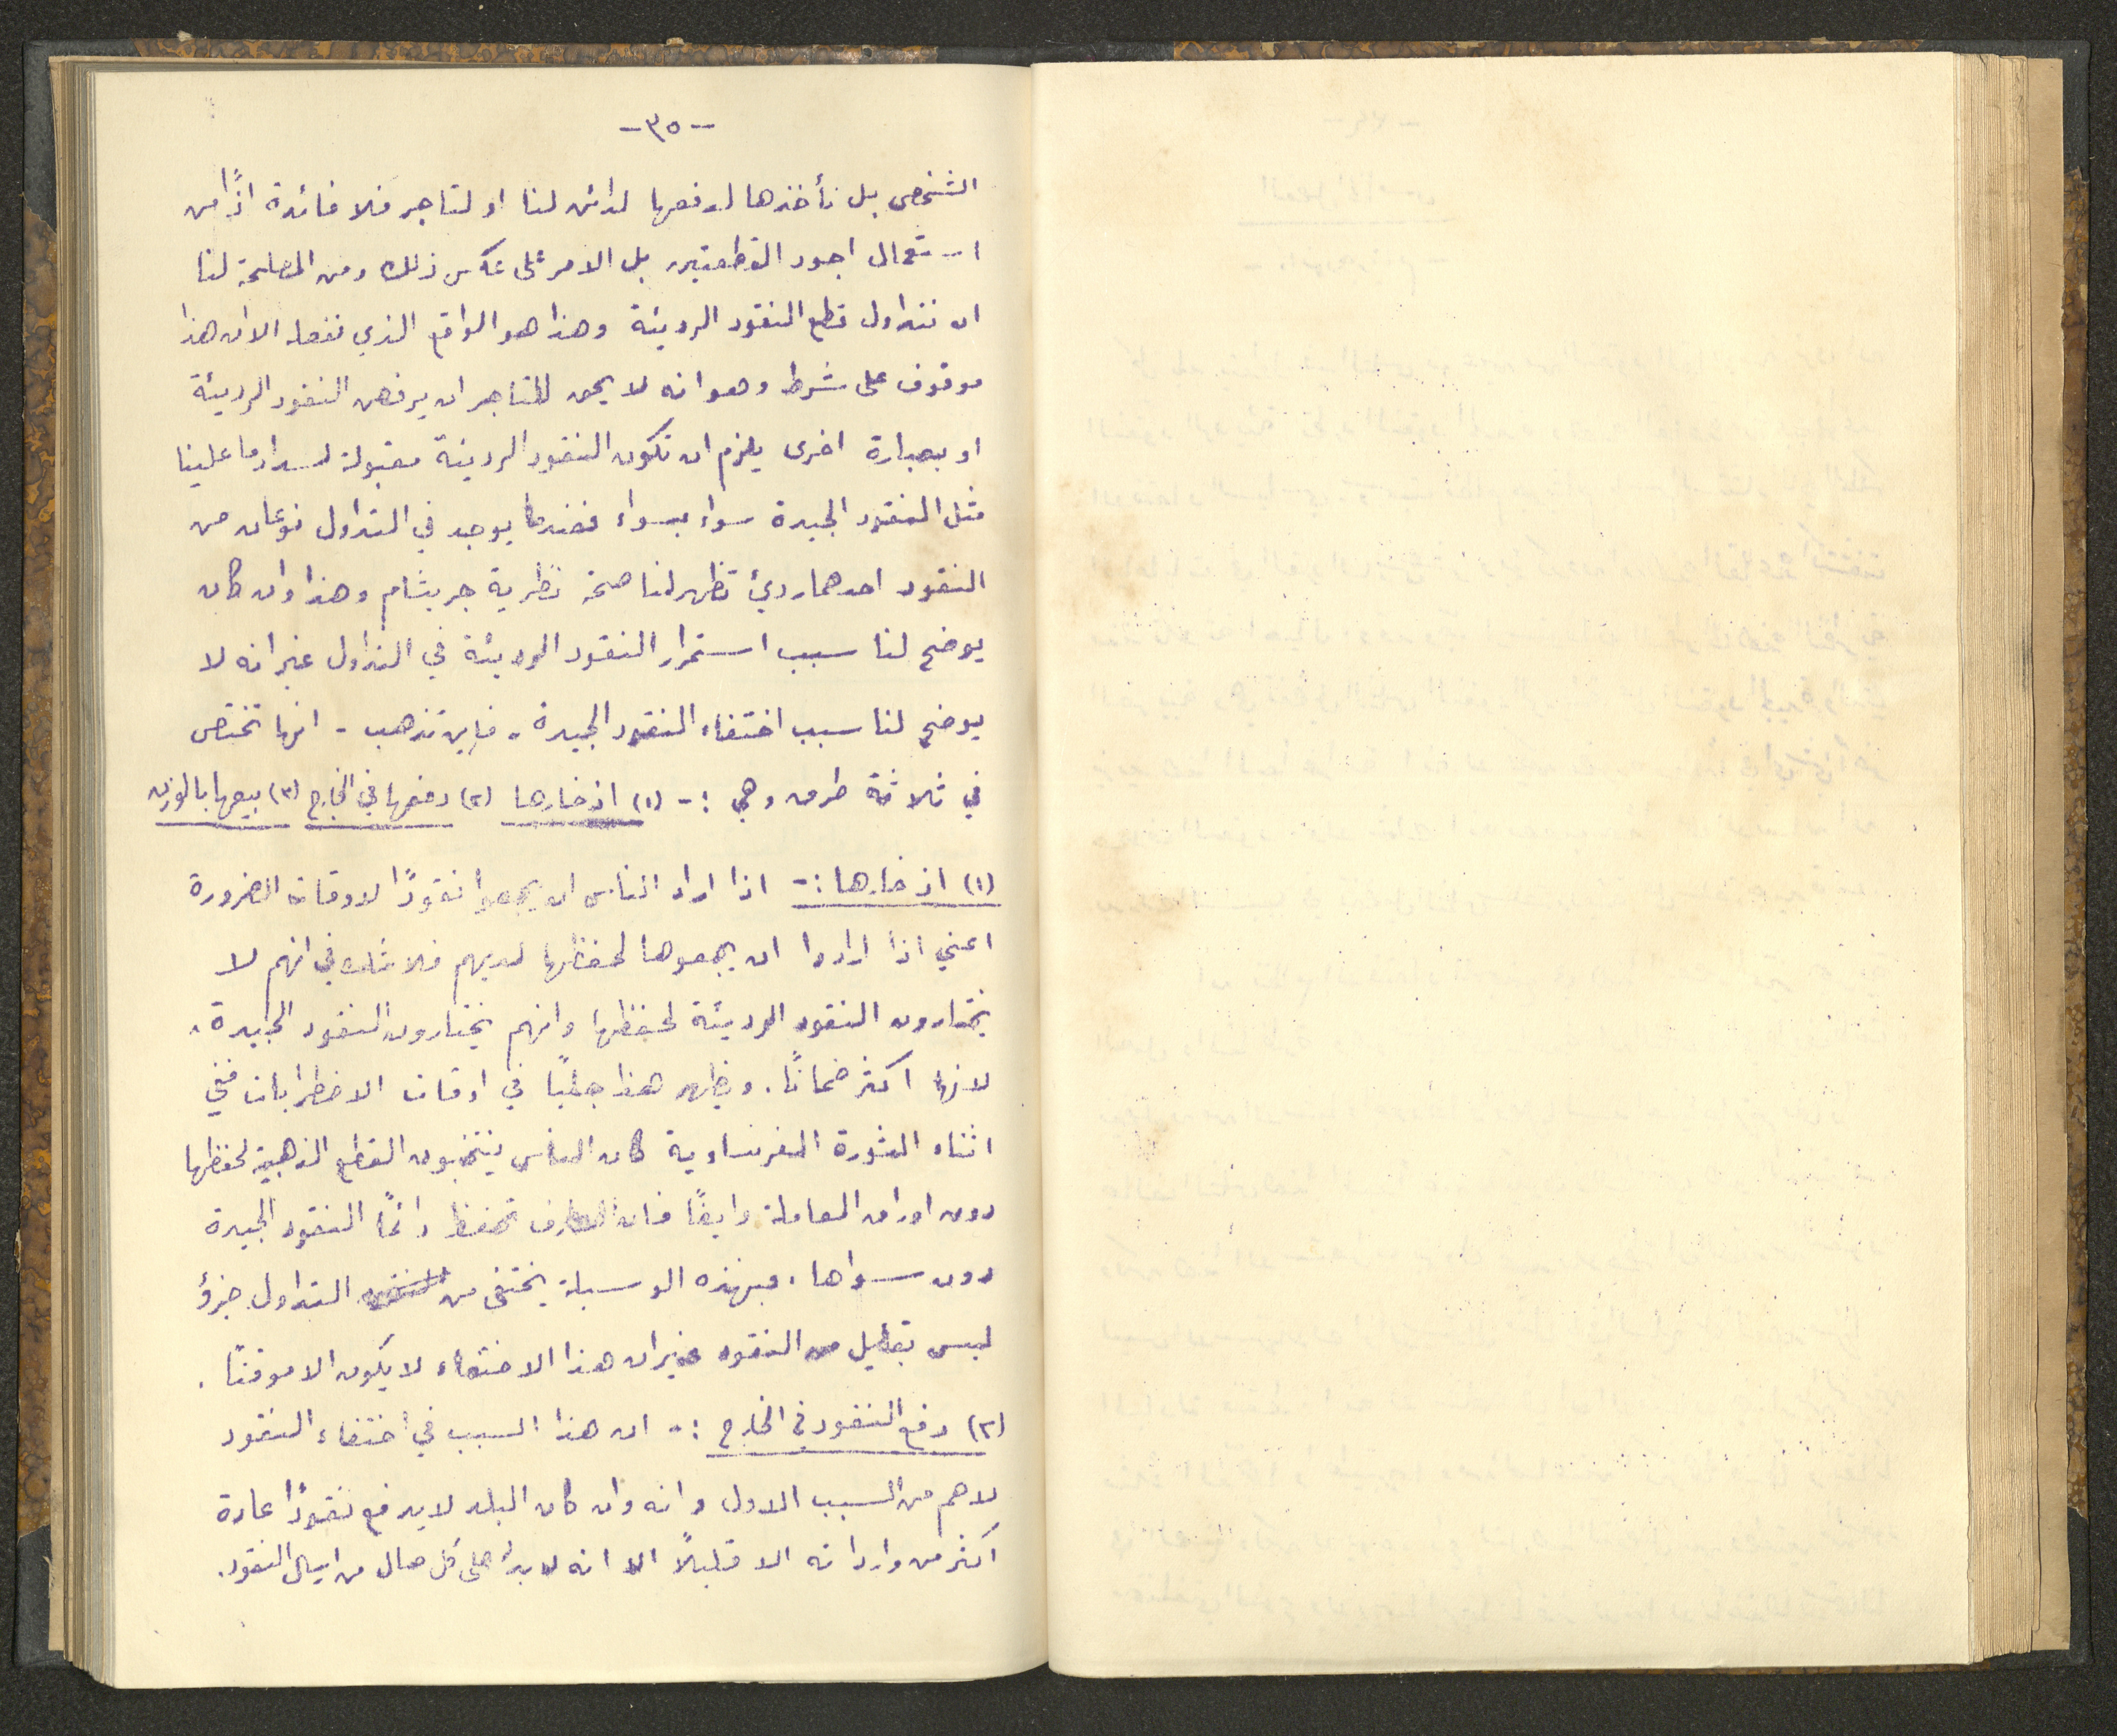 -٣٥-
الشخصي بل نأخذها لدفعها لدائن لنا او لتاجر فلا فائدة اذًا من
استعمال اجود القطعتين بل الامر على عكس ذلك ومن المصلحة لنا
ان نتداول قطع النقود الرديئة وهذا هو الواقع الذي نفعله الان هذا
موقوف على شرط وهو انه لا يحق للتاجر ان يرفض النقود الرديئة
او بعبارة اخرى يلزم ان تكون النقود الرديئة مقبولة لسداد ما علينا
مثل النقود الجيدة سواء بسواء فعندما يوجد في التداول نوعان من
النقود احدهما رديئ تظهر لنا صحة نظرية جريشام وهذا وان كان
يوضح لنا سبب استمرار النقود الرديئة في التداول غير انه لا
يوضح لنا سبب اختفاء النقود الجيدة. فاين تذهب - انها تختص
في ثلاثة طرق وهي :- (١) اذخارها (٢) دفعها في الخارج (٣) بيعها بالوزن
(١) اذخارها :- اذا اراد الناس ان يجمعوا نقودًا لاوقات الضرورة
اعني اذا ارادوا ان يجمعوها لحفظها لديهم فلا شك في انهم لا
يختارون النقود الرديئة لحفظها وانهم يختارون النقود الجيدة.
لانها اكثر ضمانًا. ويظهر هذا جليًا في اوقات الاضطرابات ففي
اثناء الثورة الفرنساوية كان الناس ينتخبون القطع الذهبية لحفظها
دون اوراق المعاملة وايضًا فان المصارف تحفظ دائمًا النقود الجيدة
دون سواها. فبهذه الوسيلة يختفى من التداول جزؤ
ليس بقليل من النقود غير ان هذا الاختفاء لا يكون الا موقتًا.
(٢) دفع النقود في الخارج :- ان هذا السبب في اختفاء النقود
لاهم من السبب الاول وانه وان كان البلد لا يدفع نقودًا عادة
اكثر من وارداته الا قليلًا الا انه لا بد على كل حال من ارسال النقود.